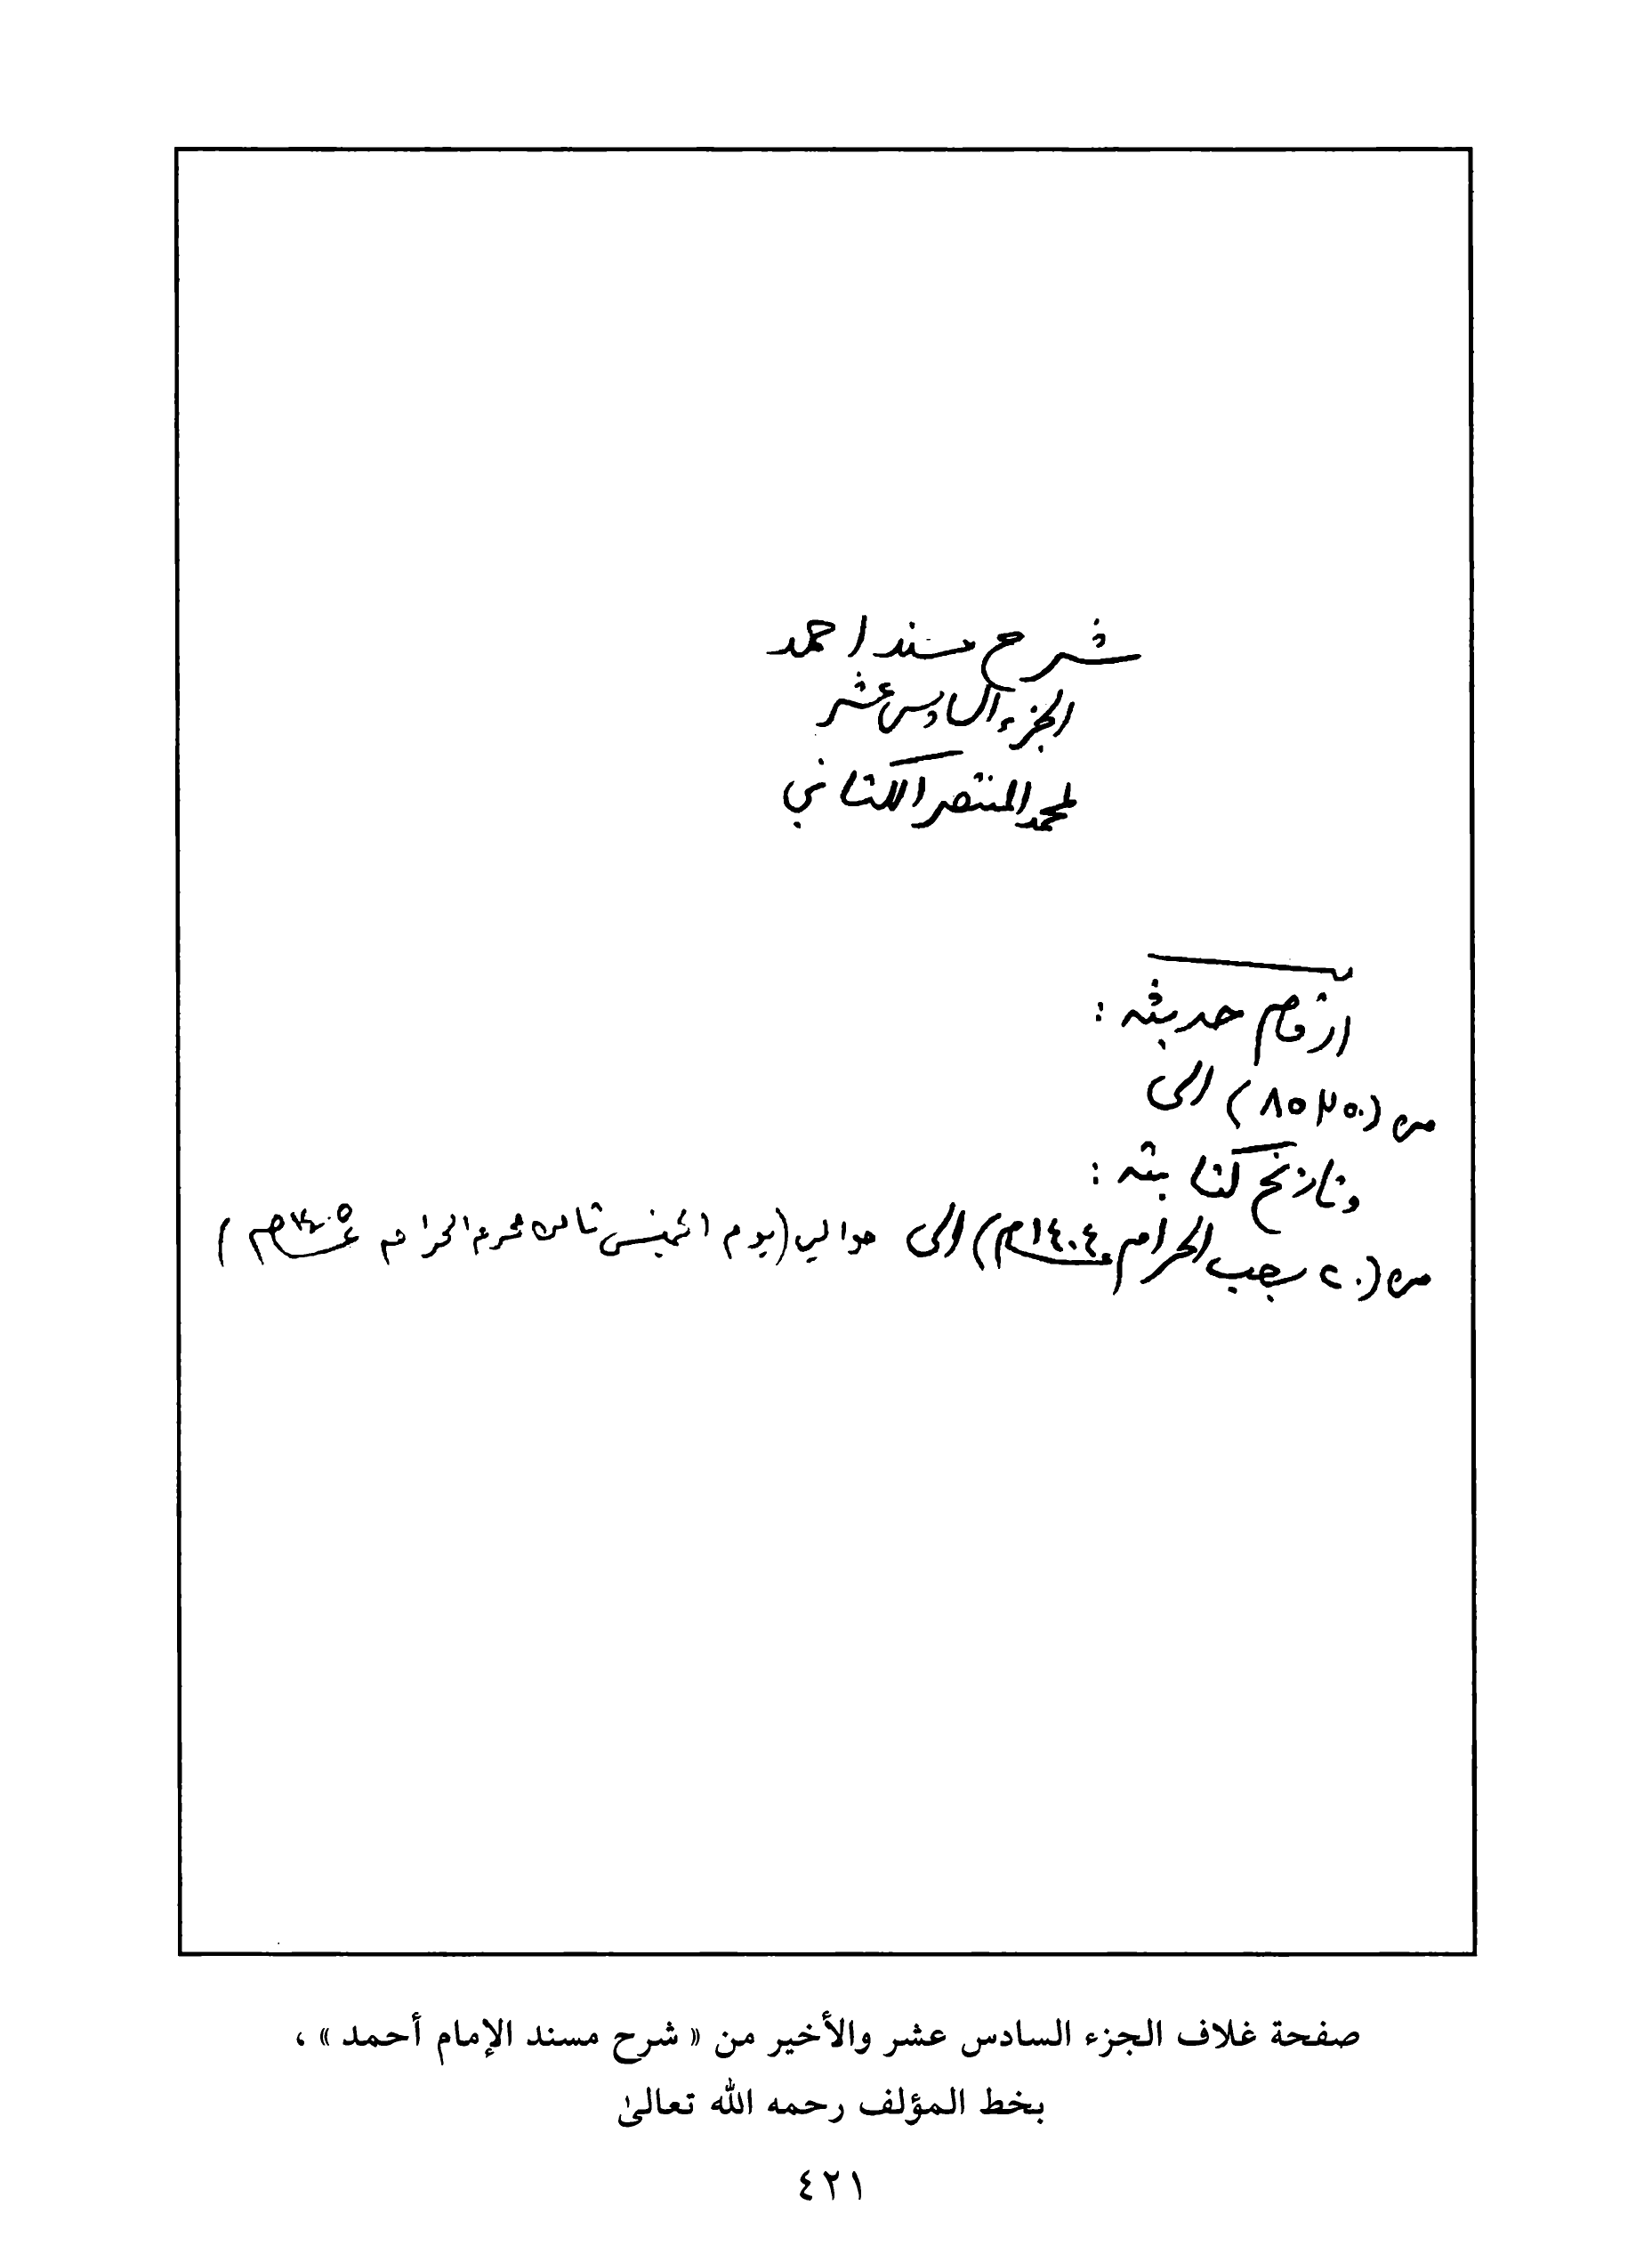 شرح مسند احمد
الجزء السادس عشر
لمحمد المنتصر الكتاني
ارقام حديثه :
من (٨٥٣٠) الى
وتاريخ كتابته :
من (٢٠ رجب الحرام ١٤٠٤هـ) الى حوالي (يوم الخميس ثامن محرم الحرام عام ١٤٠٥هـ)
صفحة غلاف الجزء السادس عشر والأخير من « شرح مسند الإمام أحمد » ،
بخط المؤلف رحمه الله تعالىٰ
٤٢١